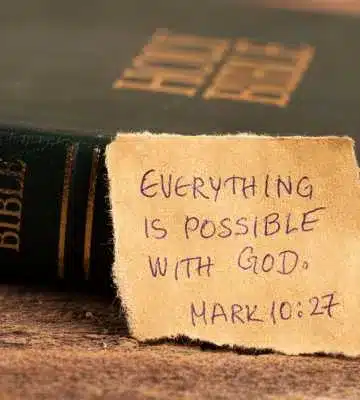 HOLY
BIBLE
BIBLE
EVERYTHING
IS POSSIBLE
WITH GOD.
MARK 10:27